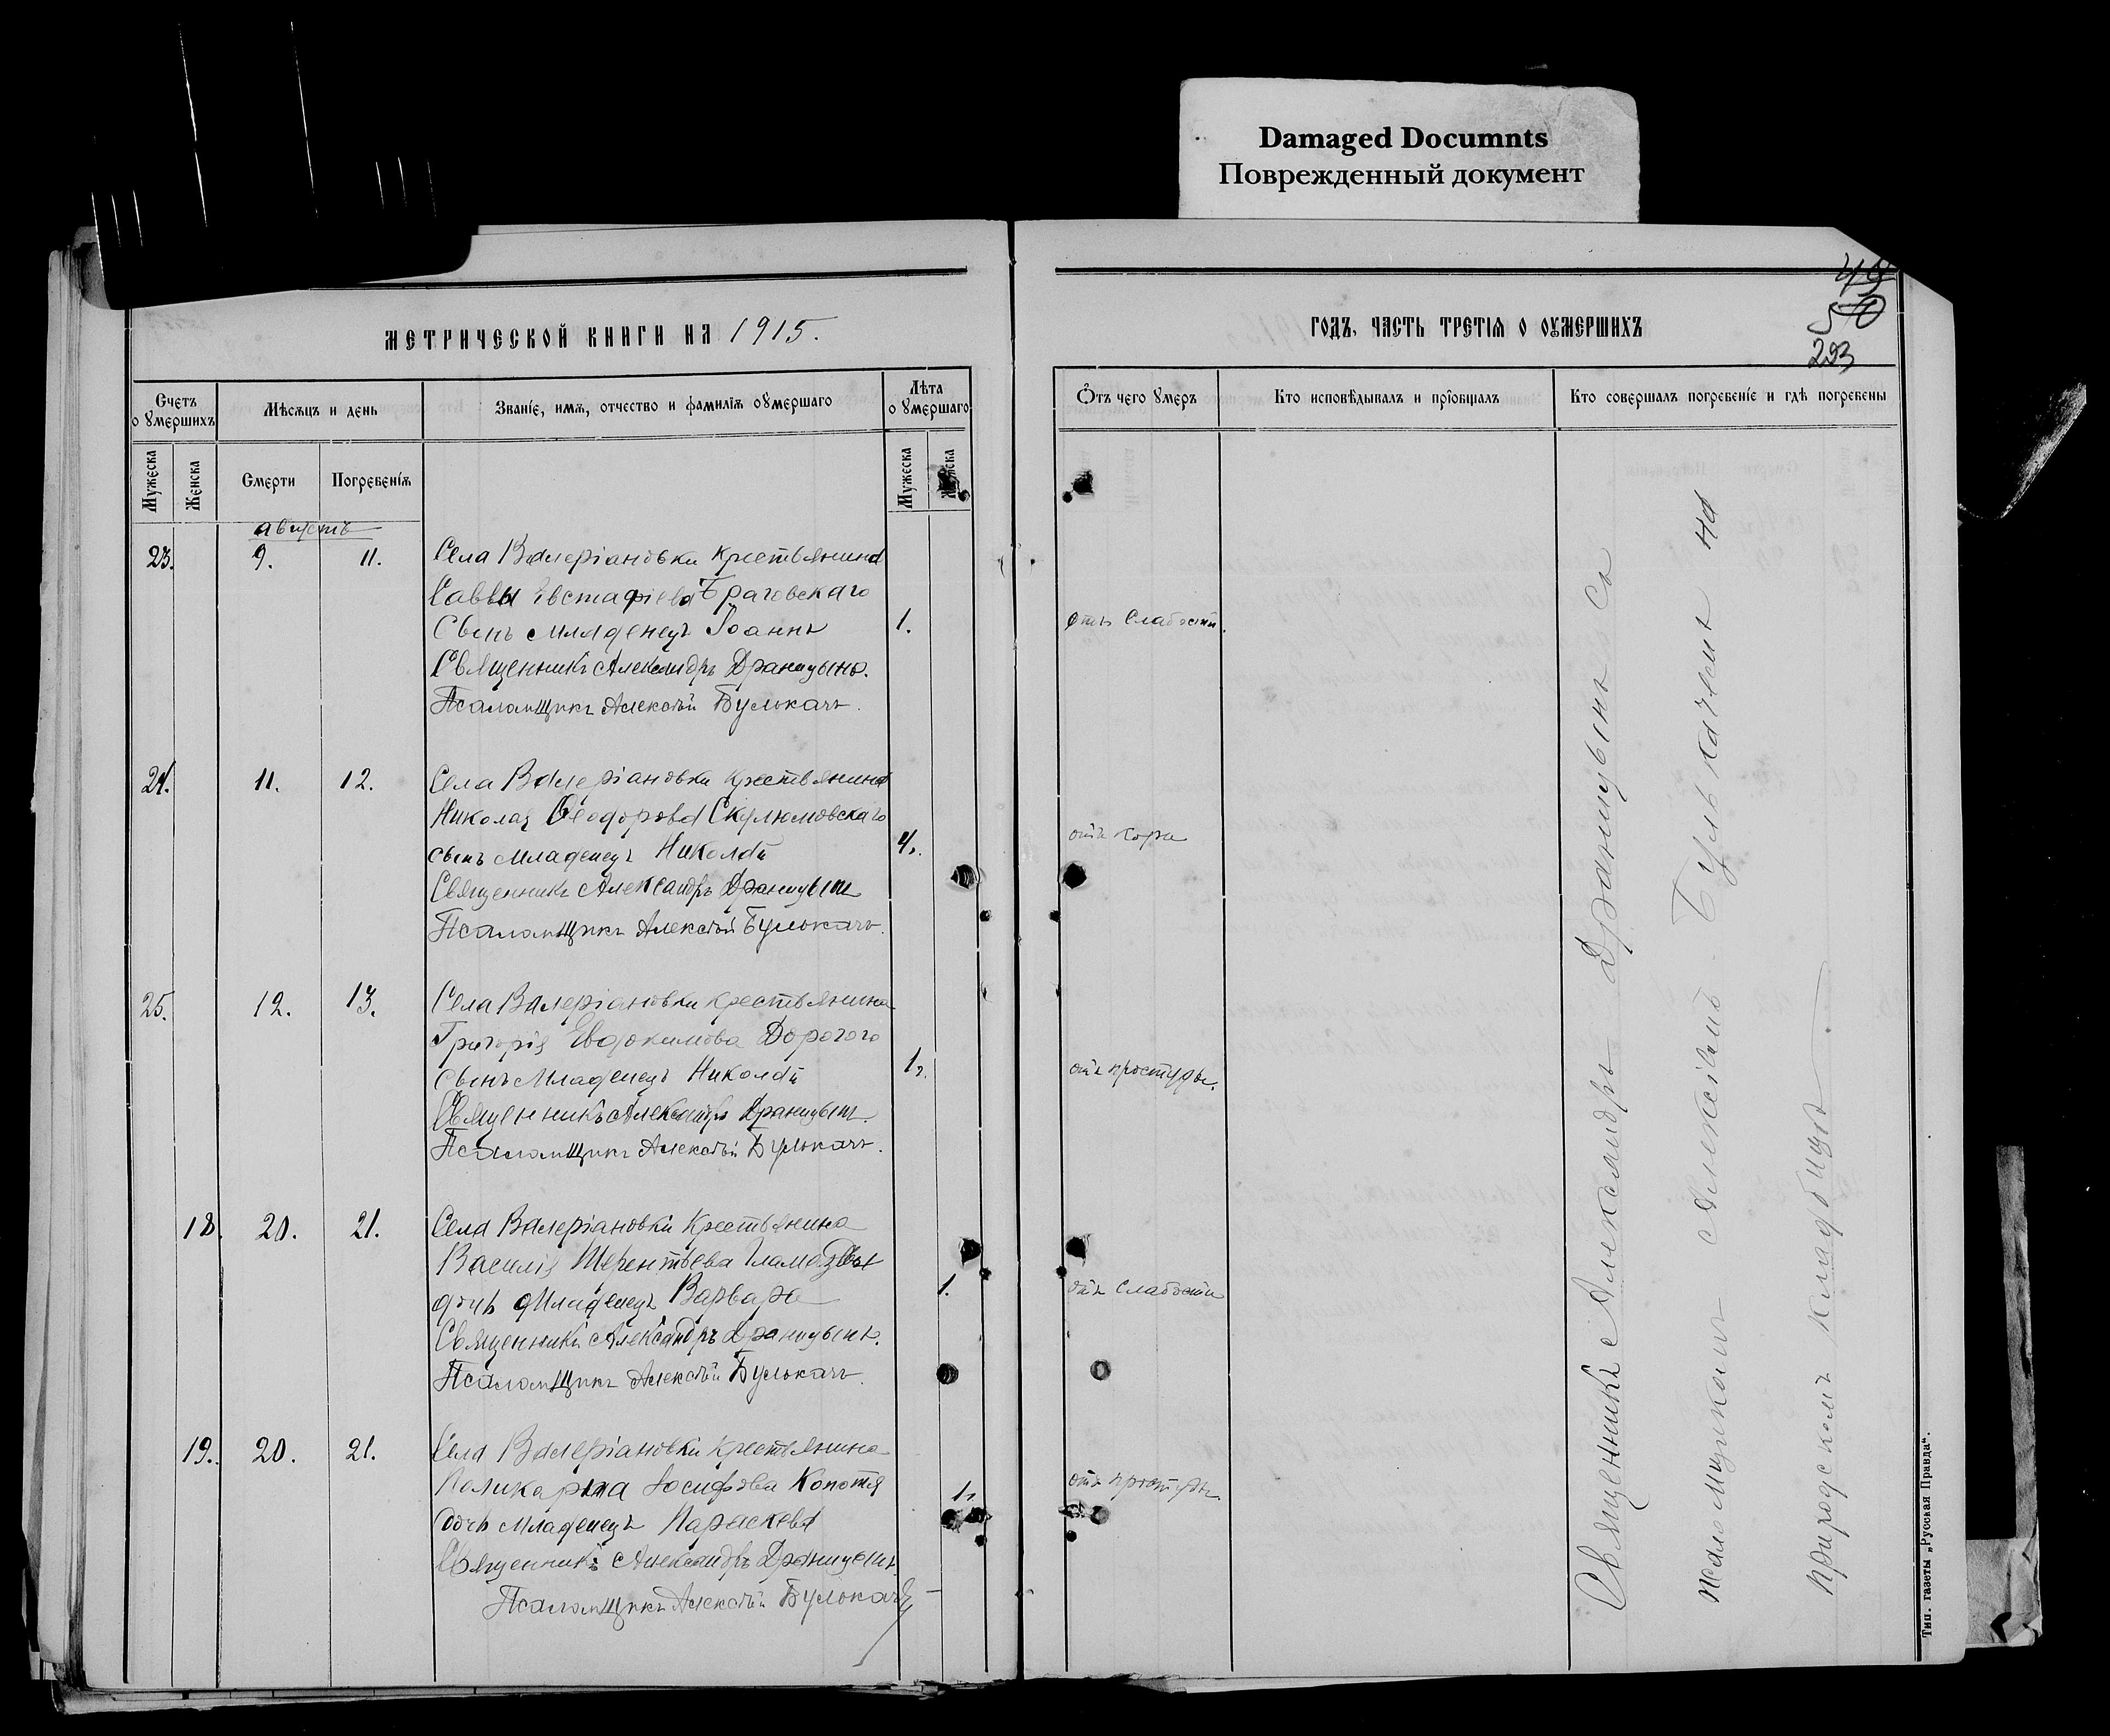 Damaged Documnts
Поврежденный документ
49
50
293
МЕТРИЧЕСКОЙ КНИГИ НА 1915.
ГОДЪ, ЧАСТЬ ТРЕТІЯ О ОУМЕРШИХЪ
Счетъ о умершихъ
Мѣсяцъ и день
Званіе, имя, отчество и фамилія оумершаго
Лѣта оумершаго
Отъ чего умеръ
Кто исповѣдывалъ и пріобщалъ
Кто совершалъ погребеніе и гдѣ погребены
Мужеска
Женска
Смерти
Погребенія
Мужеска
Женска
августъ
23. 9. 11. Села Валеріановки крестьянина
Саввы Евстафіева Браговскаго
Сынъ младенецъ Іоаннъ 1. отъ слабости.
Священникъ Александръ Драницынъ.
Псаломщикъ Алексѣй Булькачъ.
24. 11. 12. Села Валеріановки крестьянина
Николая Ѳеодорова Скулюмовскаго
сынъ младенецъ Николай 4. отъ кори
Священникъ Александръ Драницынъ
Псаломщикъ Алексѣй Булькачъ.
25. 12. 13. Села Валеріановки крестьянина
Григорія Евдокимова Дорогого
сынъ младенецъ Николай 1. отъ простуды.
Священникъ Александръ Драницынъ.
Псаломщикъ Алексѣй Булькачъ.
18. 20. 21. Села Валеріановки крестьянина
Василія Терентьева
дочь младенецъ Варвара 1. отъ слабости
Священникъ Александръ Драницынъ.
Псаломщикъ Алексѣй Булькачъ.
19. 20. 21. Села Валеріановки крестьянина
Поликарпа Іосифова Копотя
дочь младенецъ Параскева 1. отъ простуды.
Священникъ Александръ Драницынъ
Псаломщикъ Алексѣй Булькачъ
Священникъ Александръ Драницынъ Съ
псаломщикомъ Алексѣемъ Булькачемъ на
приходскомъ кладбищѣ
Тип. газеты „Русская Правда“.